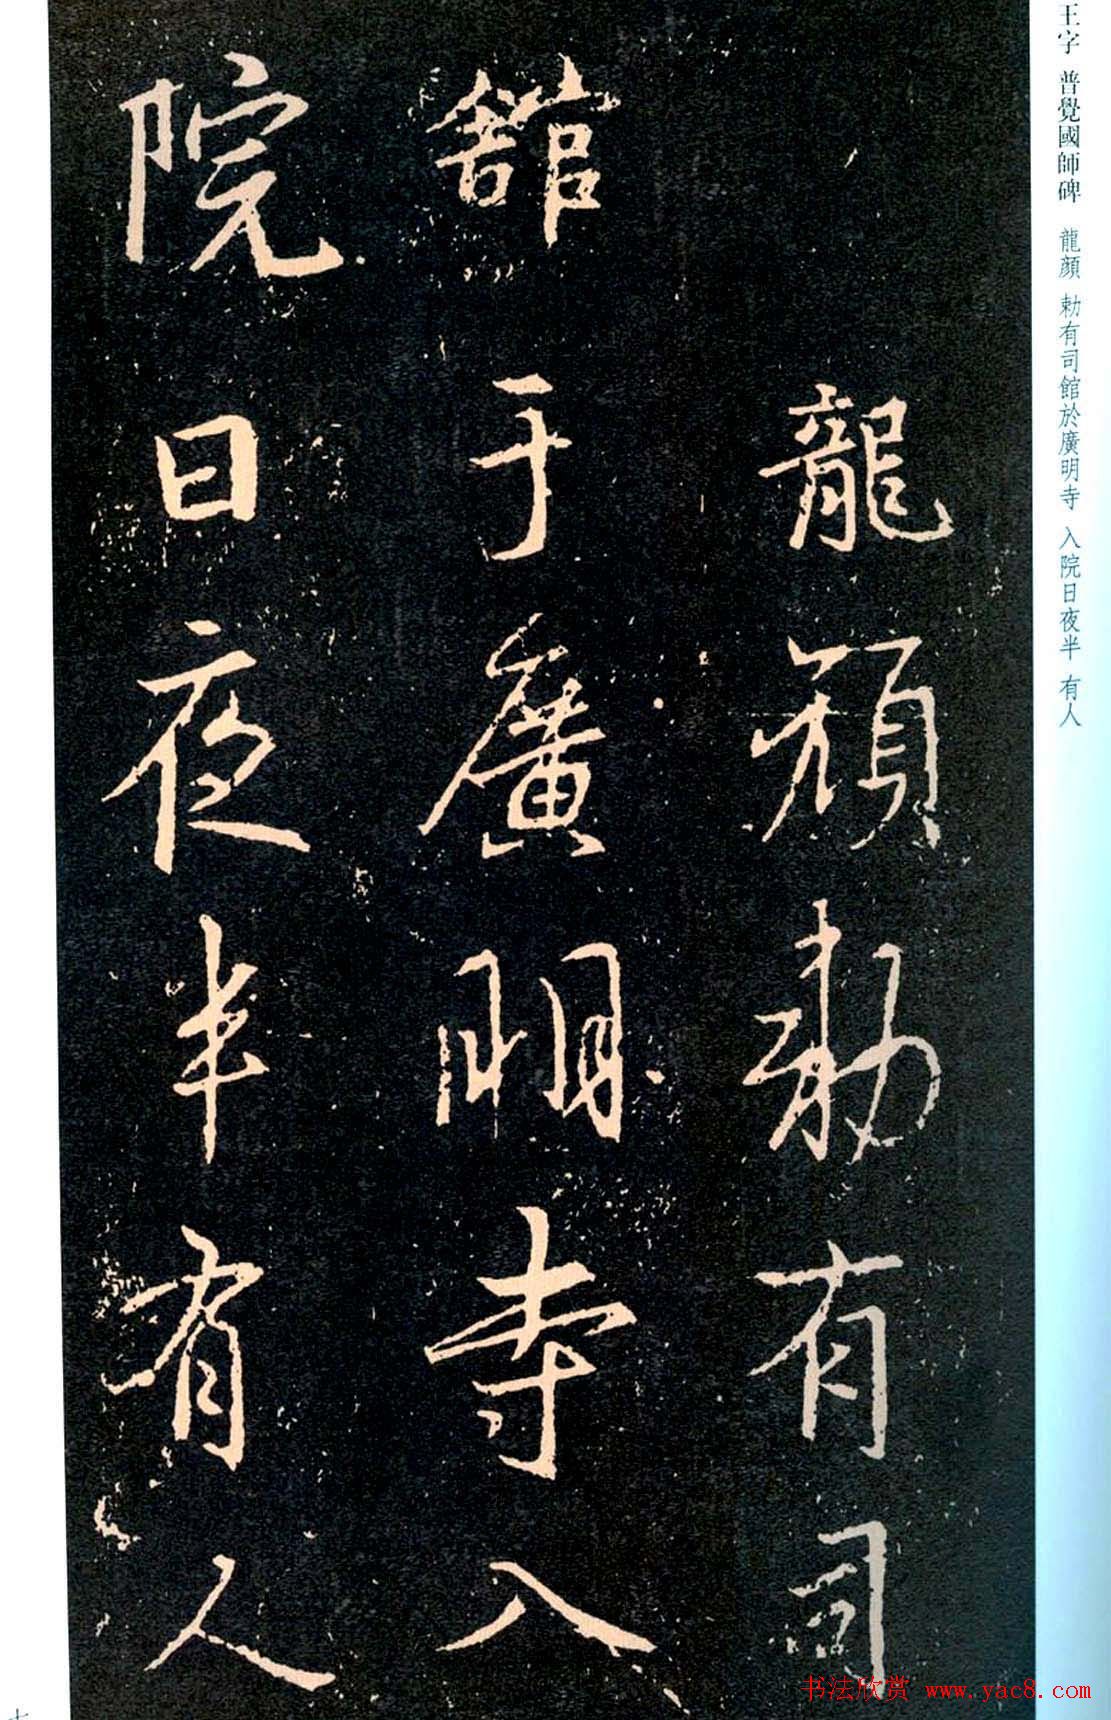 王字 普覺國師碑 龍顏 勅有司館於廣明寺 入院日夜半 有人
龍顏勅有司
舘于廣明寺入
院日夜半有人
书法欣赏 www.yac8.com